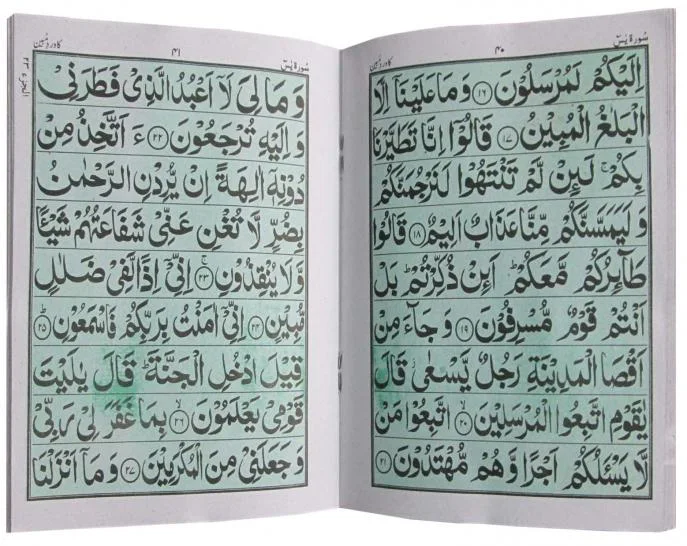 سُورَة يٰسٓ
٤٠
كادر دُبين
اِلَيْكُمْ لَمُرْسَلُوْنَ ۝١٦ وَمَا عَلَيْنَاۤ اِلَّا
الْبَلٰغُ الْمُبِيْنُ ۝١٧ قَالُوْۤا اِنَّا تَطَيَّرْنَا
بِكُمْ ۚ لَئِنْ لَّمْ تَنْتَهُوْا لَنَرْجُمَنَّكُمْ
وَ لَيَمَسَّنَّكُمْ مِّنَّا عَذَابٌ اَلِيْمٌ ۝١٨ قَالُوْا
طَآئِرُكُمْ مَّعَكُمْ ؕ اَئِنْ ذُكِّرْتُمْ ؕ بَلْ
اَنْتُمْ قَوْمٌ مُّسْرِفُوْنَ ۝١٩ وَ جَآءَ مِنْ
اَقْصَا الْمَدِيْنَةِ رَجُلٌ يَّسْعٰى قَالَ
يٰقَوْمِ اتَّبِعُوا الْمُرْسَلِيْنَ ۝٢٠ ۙ اتَّبِعُوْا مَنْ
لَّا يَسْئَلُكُمْ اَجْرًا وَّ هُمْ مُّهْتَدُوْنَ ۝٢١
سُورَة يٰسٓ
٤١
كادر دُبين
الجزء ٢٣
وَ مَا لِيَ لَاۤ اَعْبُدُ الَّذِيْ فَطَرَنِيْ
وَ اِلَيْهِ تُرْجَعُوْنَ ۝٢٢ ءَ اَتَّخِذُ مِنْ
دُوْنِهٖۤ اٰلِهَةً اِنْ يُّرِدْنِ الرَّحْمٰنُ
بِضُرٍّ لَّا تُغْنِ عَنِّيْ شَفَاعَتُهُمْ شَيْئًا
وَّ لَا يُنْقِذُوْنِ ۝٢٣ ۚ اِنِّيْۤ اِذًا لَّفِيْ ضَلٰلٍ
مُّبِيْنٍ ۝٢٤ اِنِّيْۤ اٰمَنْتُ بِرَبِّكُمْ فَاسْمَعُوْنِ ۝٢٥ ؕ
قِيْلَ ادْخُلِ الْجَنَّةَ ؕ قَالَ يٰلَيْتَ
قَوْمِيْ يَعْلَمُوْنَ ۝٢٦ ۙ بِمَا غَفَرَ لِيْ رَبِّيْ
وَ جَعَلَنِيْ مِنَ الْمُكْرَمِيْنَ ۝٢٧ وَ مَاۤ اَنْزَلْنَا